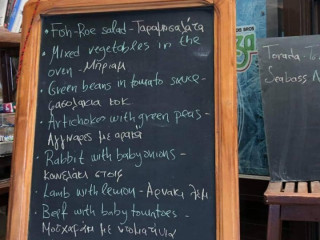 • Fish-Roe salad - Ταραμοσαλάτα
• Mixed vegetables in the
oven - Μπριάμ
• Green beans in tomato sauce -
φασολάκια κοκ
• Artichokes with green peas -
Αγγινάρες με αρακά
• Rabbit with baby onions -
Κουνελάκι στιφ
• Lamb with lemon - Αρνάκι λεμ
• Beef with baby tomatoes -
Μοσχαράκι με ντοματίνια
Seabass